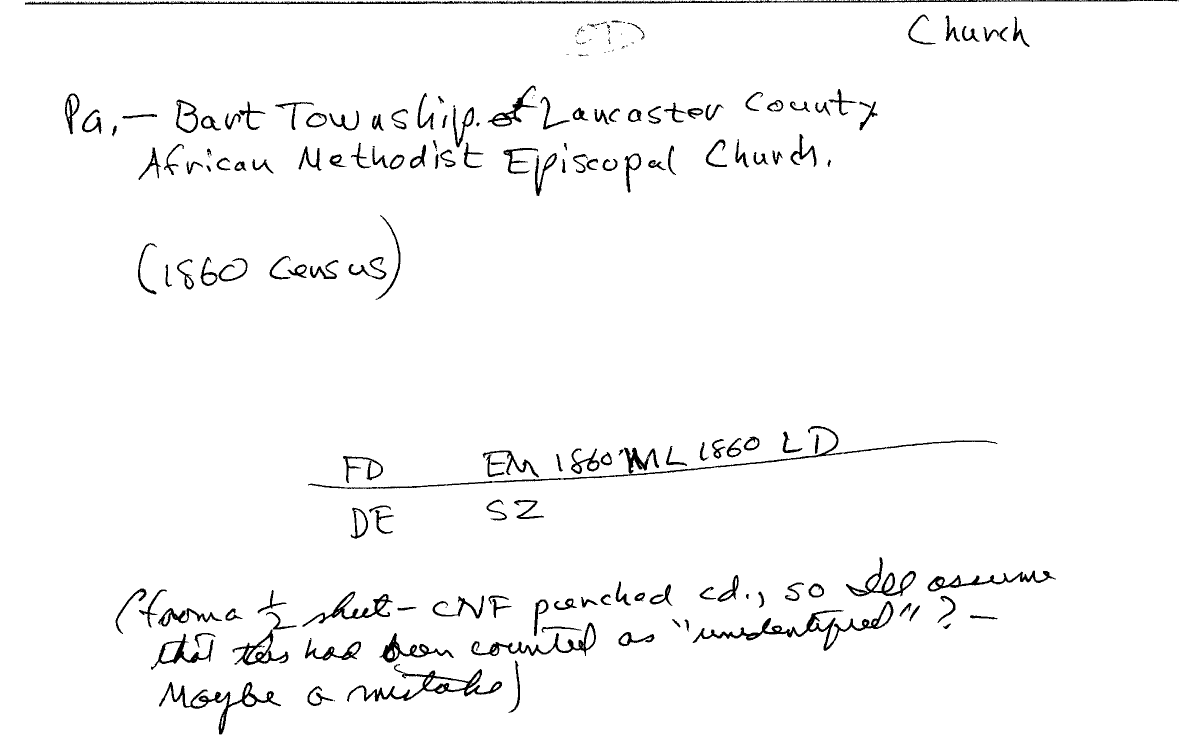 Church
Pa,— Bart Township. of Lancaster County
African Methodist Episcopal Church.
(1860 Census)
FD EM 1860 ML 1860 LD
DE SZ
(from a ½ sheet - CNF punched cd., so I'll assume
that this had been counted as "unidentified"? —
Maybe a mistake)